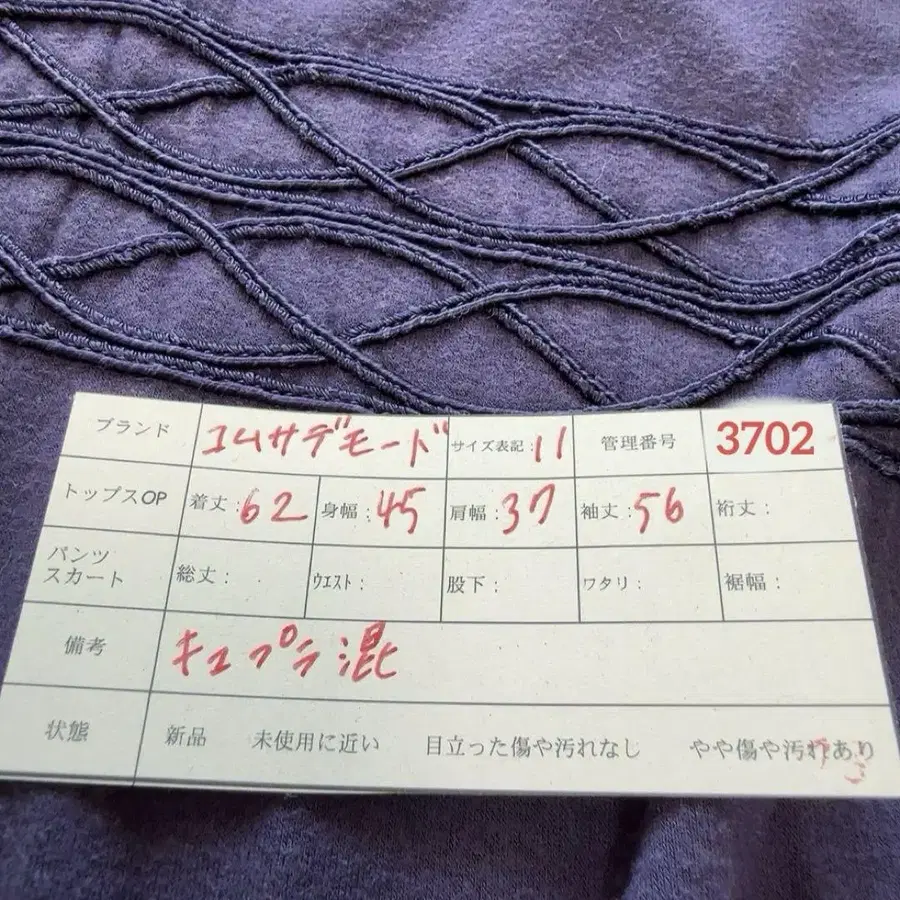 ブランド コムサデモード サイズ表記:11 管理番号 3702
トップスOP 着丈:62 身幅:45 肩幅:37 袖丈:56 裄丈:
パンツ
スカート 総丈: ウエスト: 股下: ワタリ: 裾幅:
備考 キュプラ混
状態 新品 未使用に近い 目立った傷や汚れなし やや傷や汚れあり